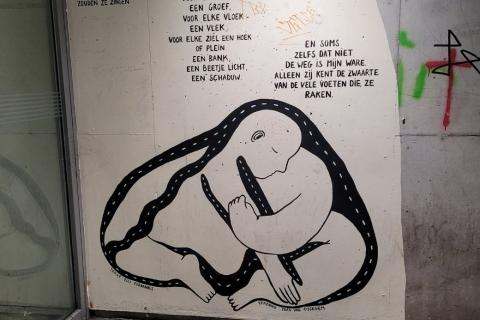 ZOUDEN ZE ZINGEN
EEN GROEF.
VOOR ELKE VLOEK
EEN VLEK,
VOOR ELKE ZIEL EEN HOEK
OF PLEIN
EEN BANK,
EEN BEETJE LICHT,
EEN SCHADUW.
EN SOMS
ZELFS DAT NIET
DE WEG IS MIJN WARE.
ALLEEN ZIJ KENT DE ZWAARTE
VAN DE VELE VOETEN DIE ZE
RAKEN.